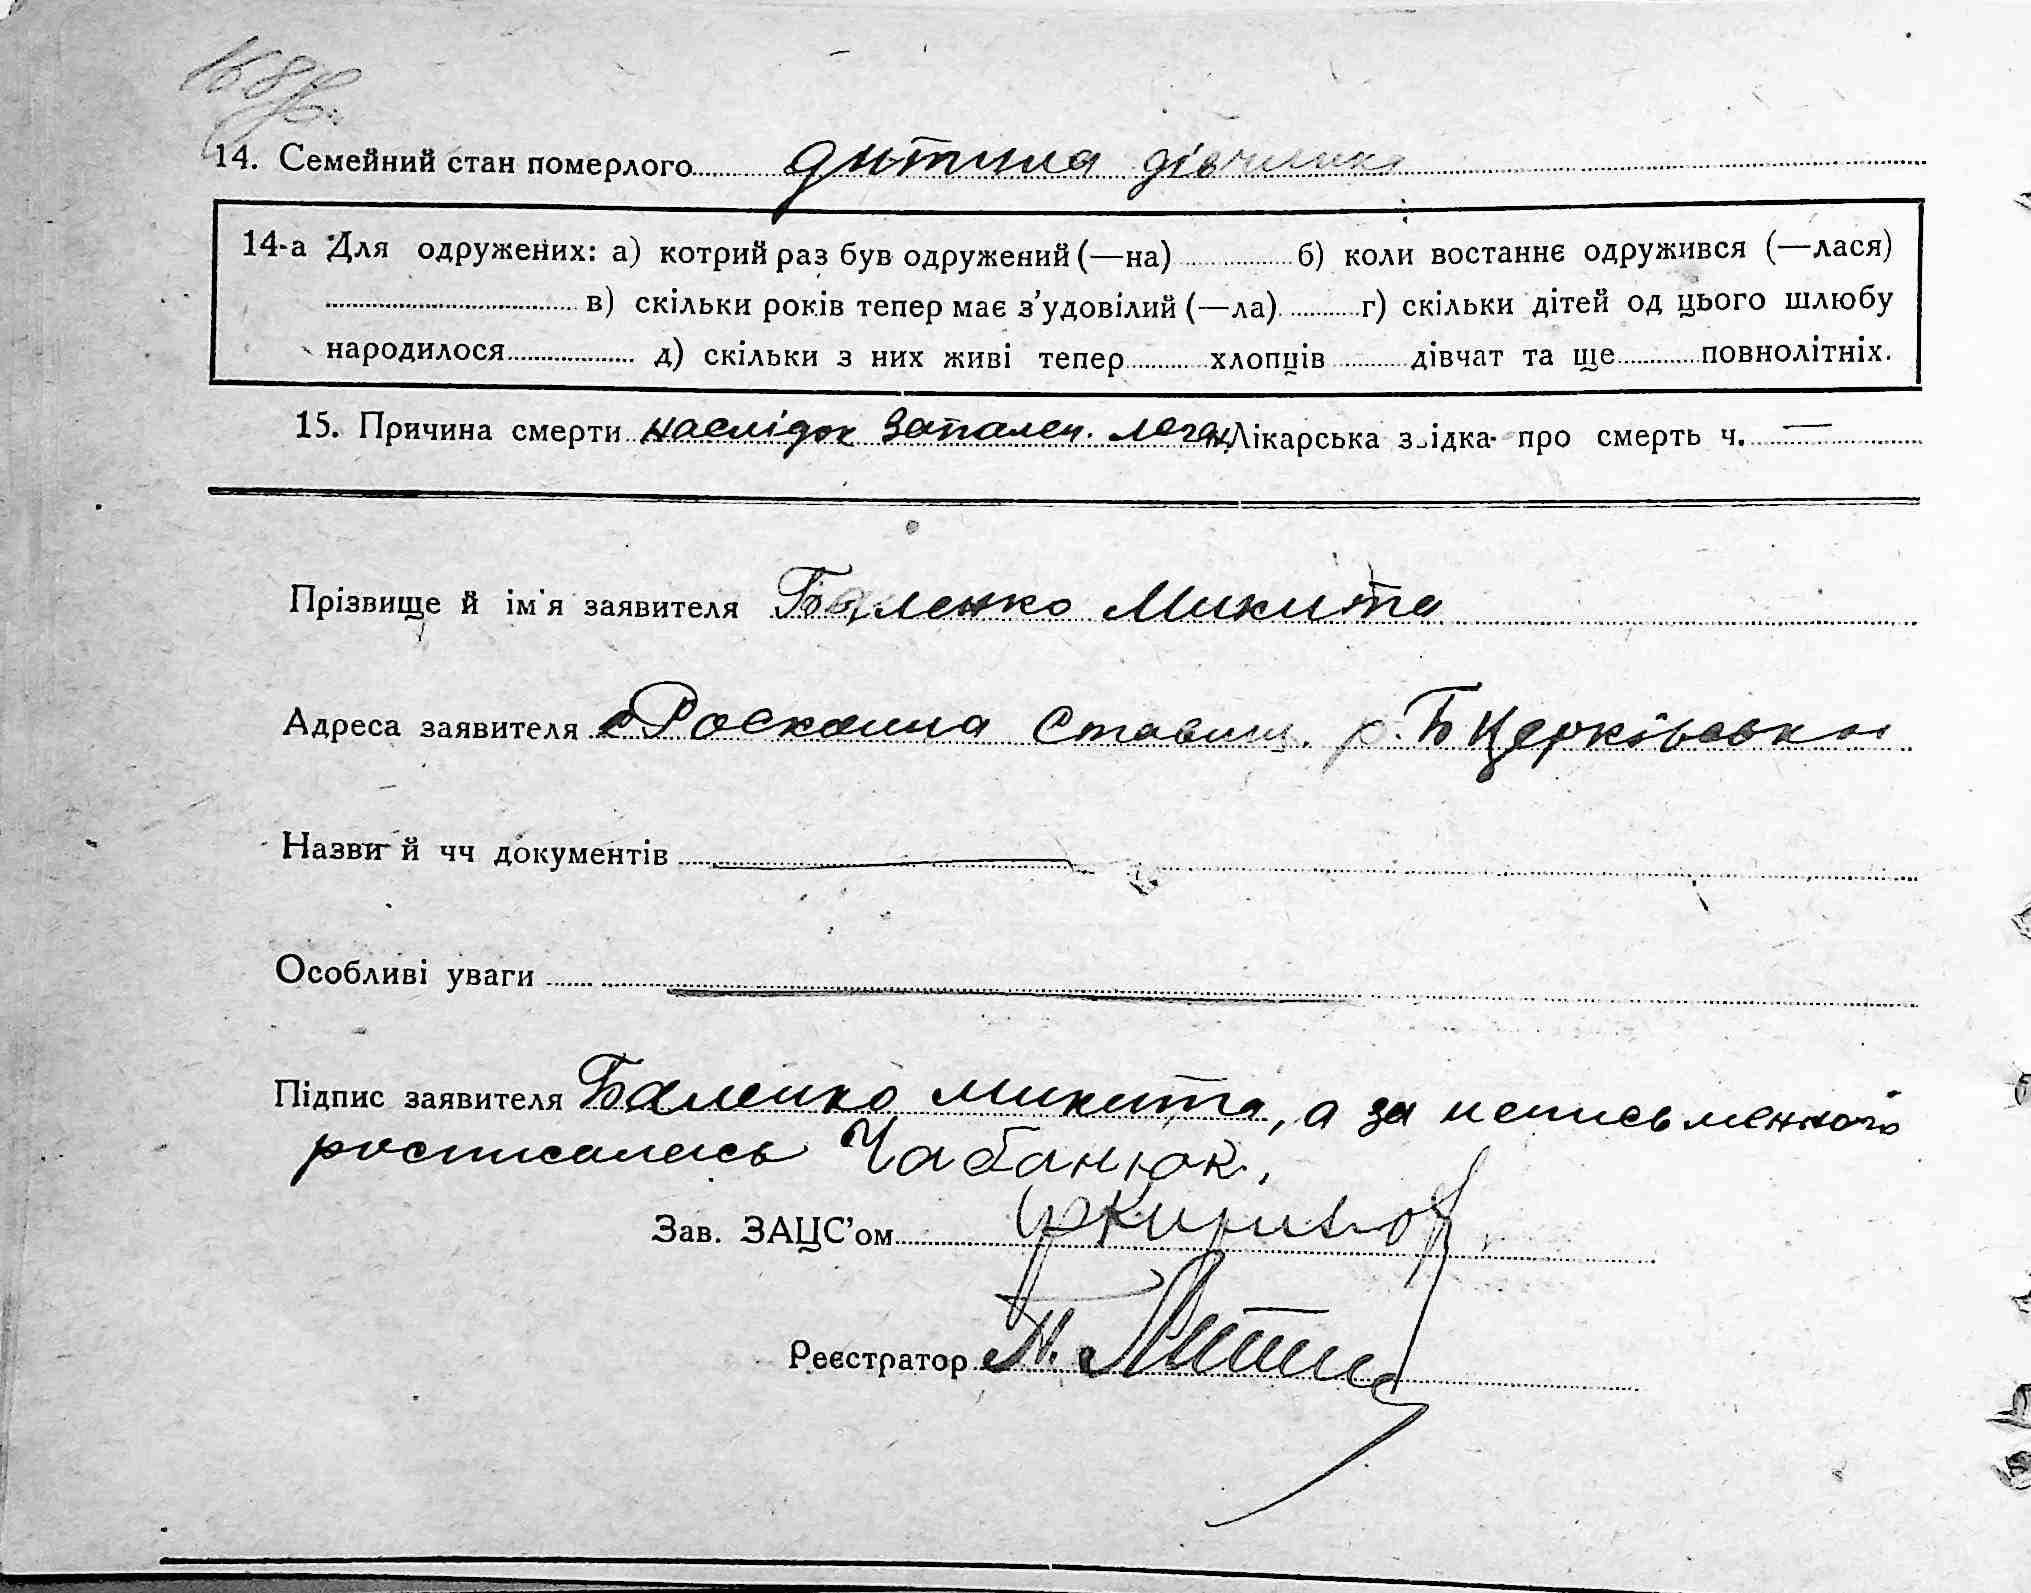 14. Семейний стан померлого дитина дівчинка
14-а Для одружених: а) котрий раз був одружений (—на) б) коли востаннє одружився (—лася)
в) скільки років тепер має з'удовілий (—ла) г) скільки дітей од цього шлюбу
народилося д) скільки з них живі тепер хлопців дівчат та ще повнолітніх.
15. Причина смерти наслідок запален. леген. Лікарська звідка про смерть ч. —
Прізвище й ім'я заявителя Баленко Микита
Адреса заявителя с Роскошна Ставищ. р. Б Церківськ
Назви й чч документів
Особливі уваги
Підпис заявителя Баленко Микита, а за неписьменного
росписалась Чабанюк.
Зав. ЗАЦС'ом
Реєстратор